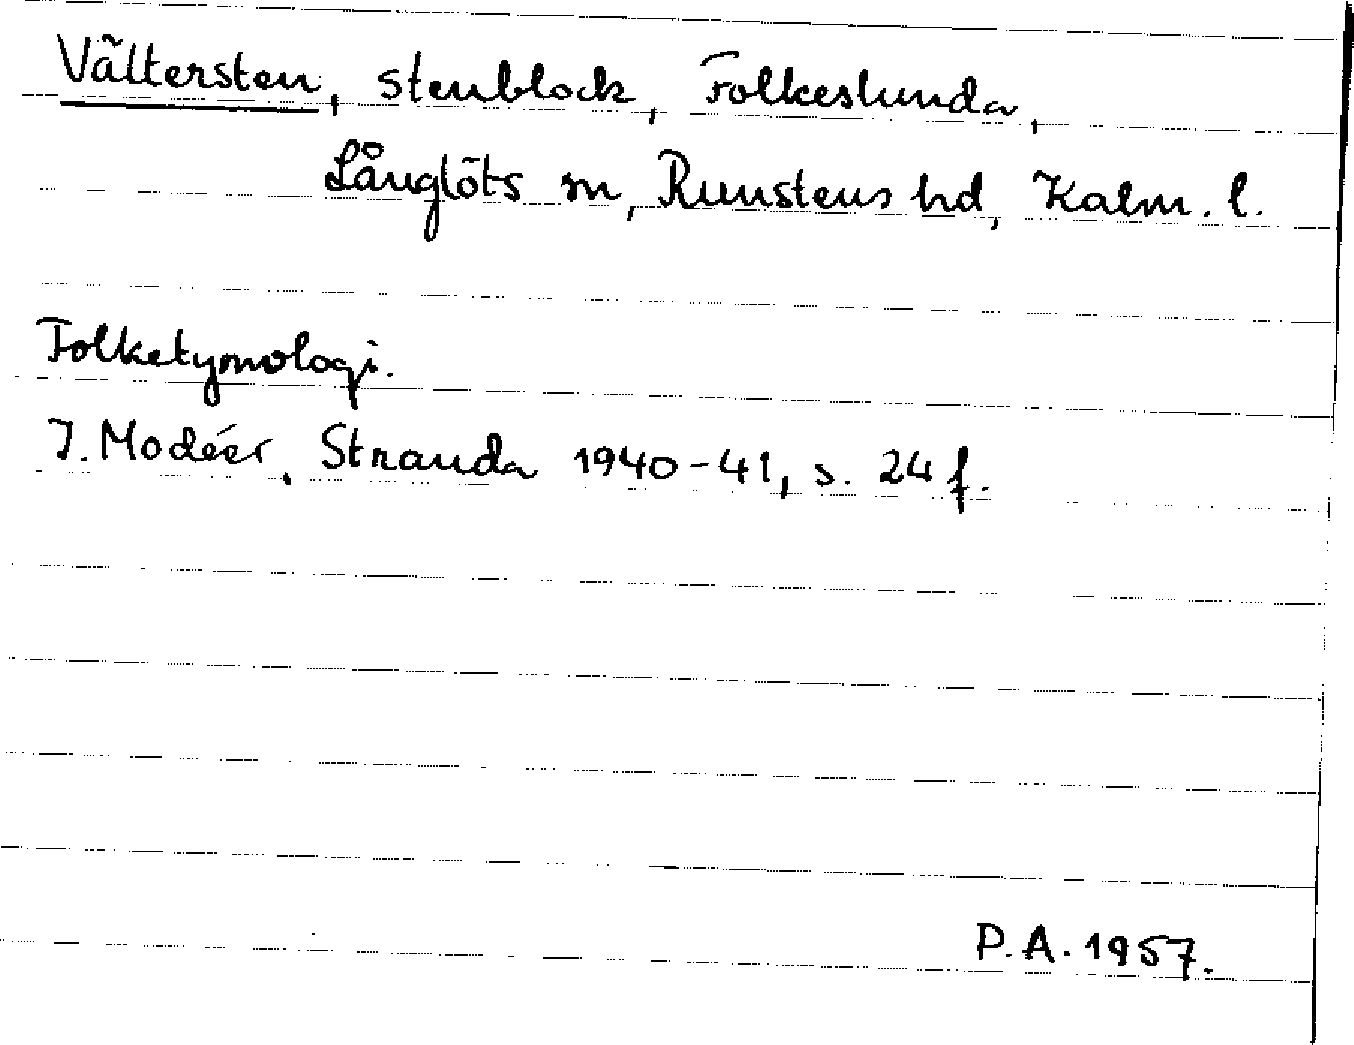 Vältersten, stenblock, Folkeslunda,
Långlöts sn, Runstens hd, Kalm. l.
Folketymologi.
I. Modéer, Stranda 1940-41, s. 24 f.
P.A. 1957.